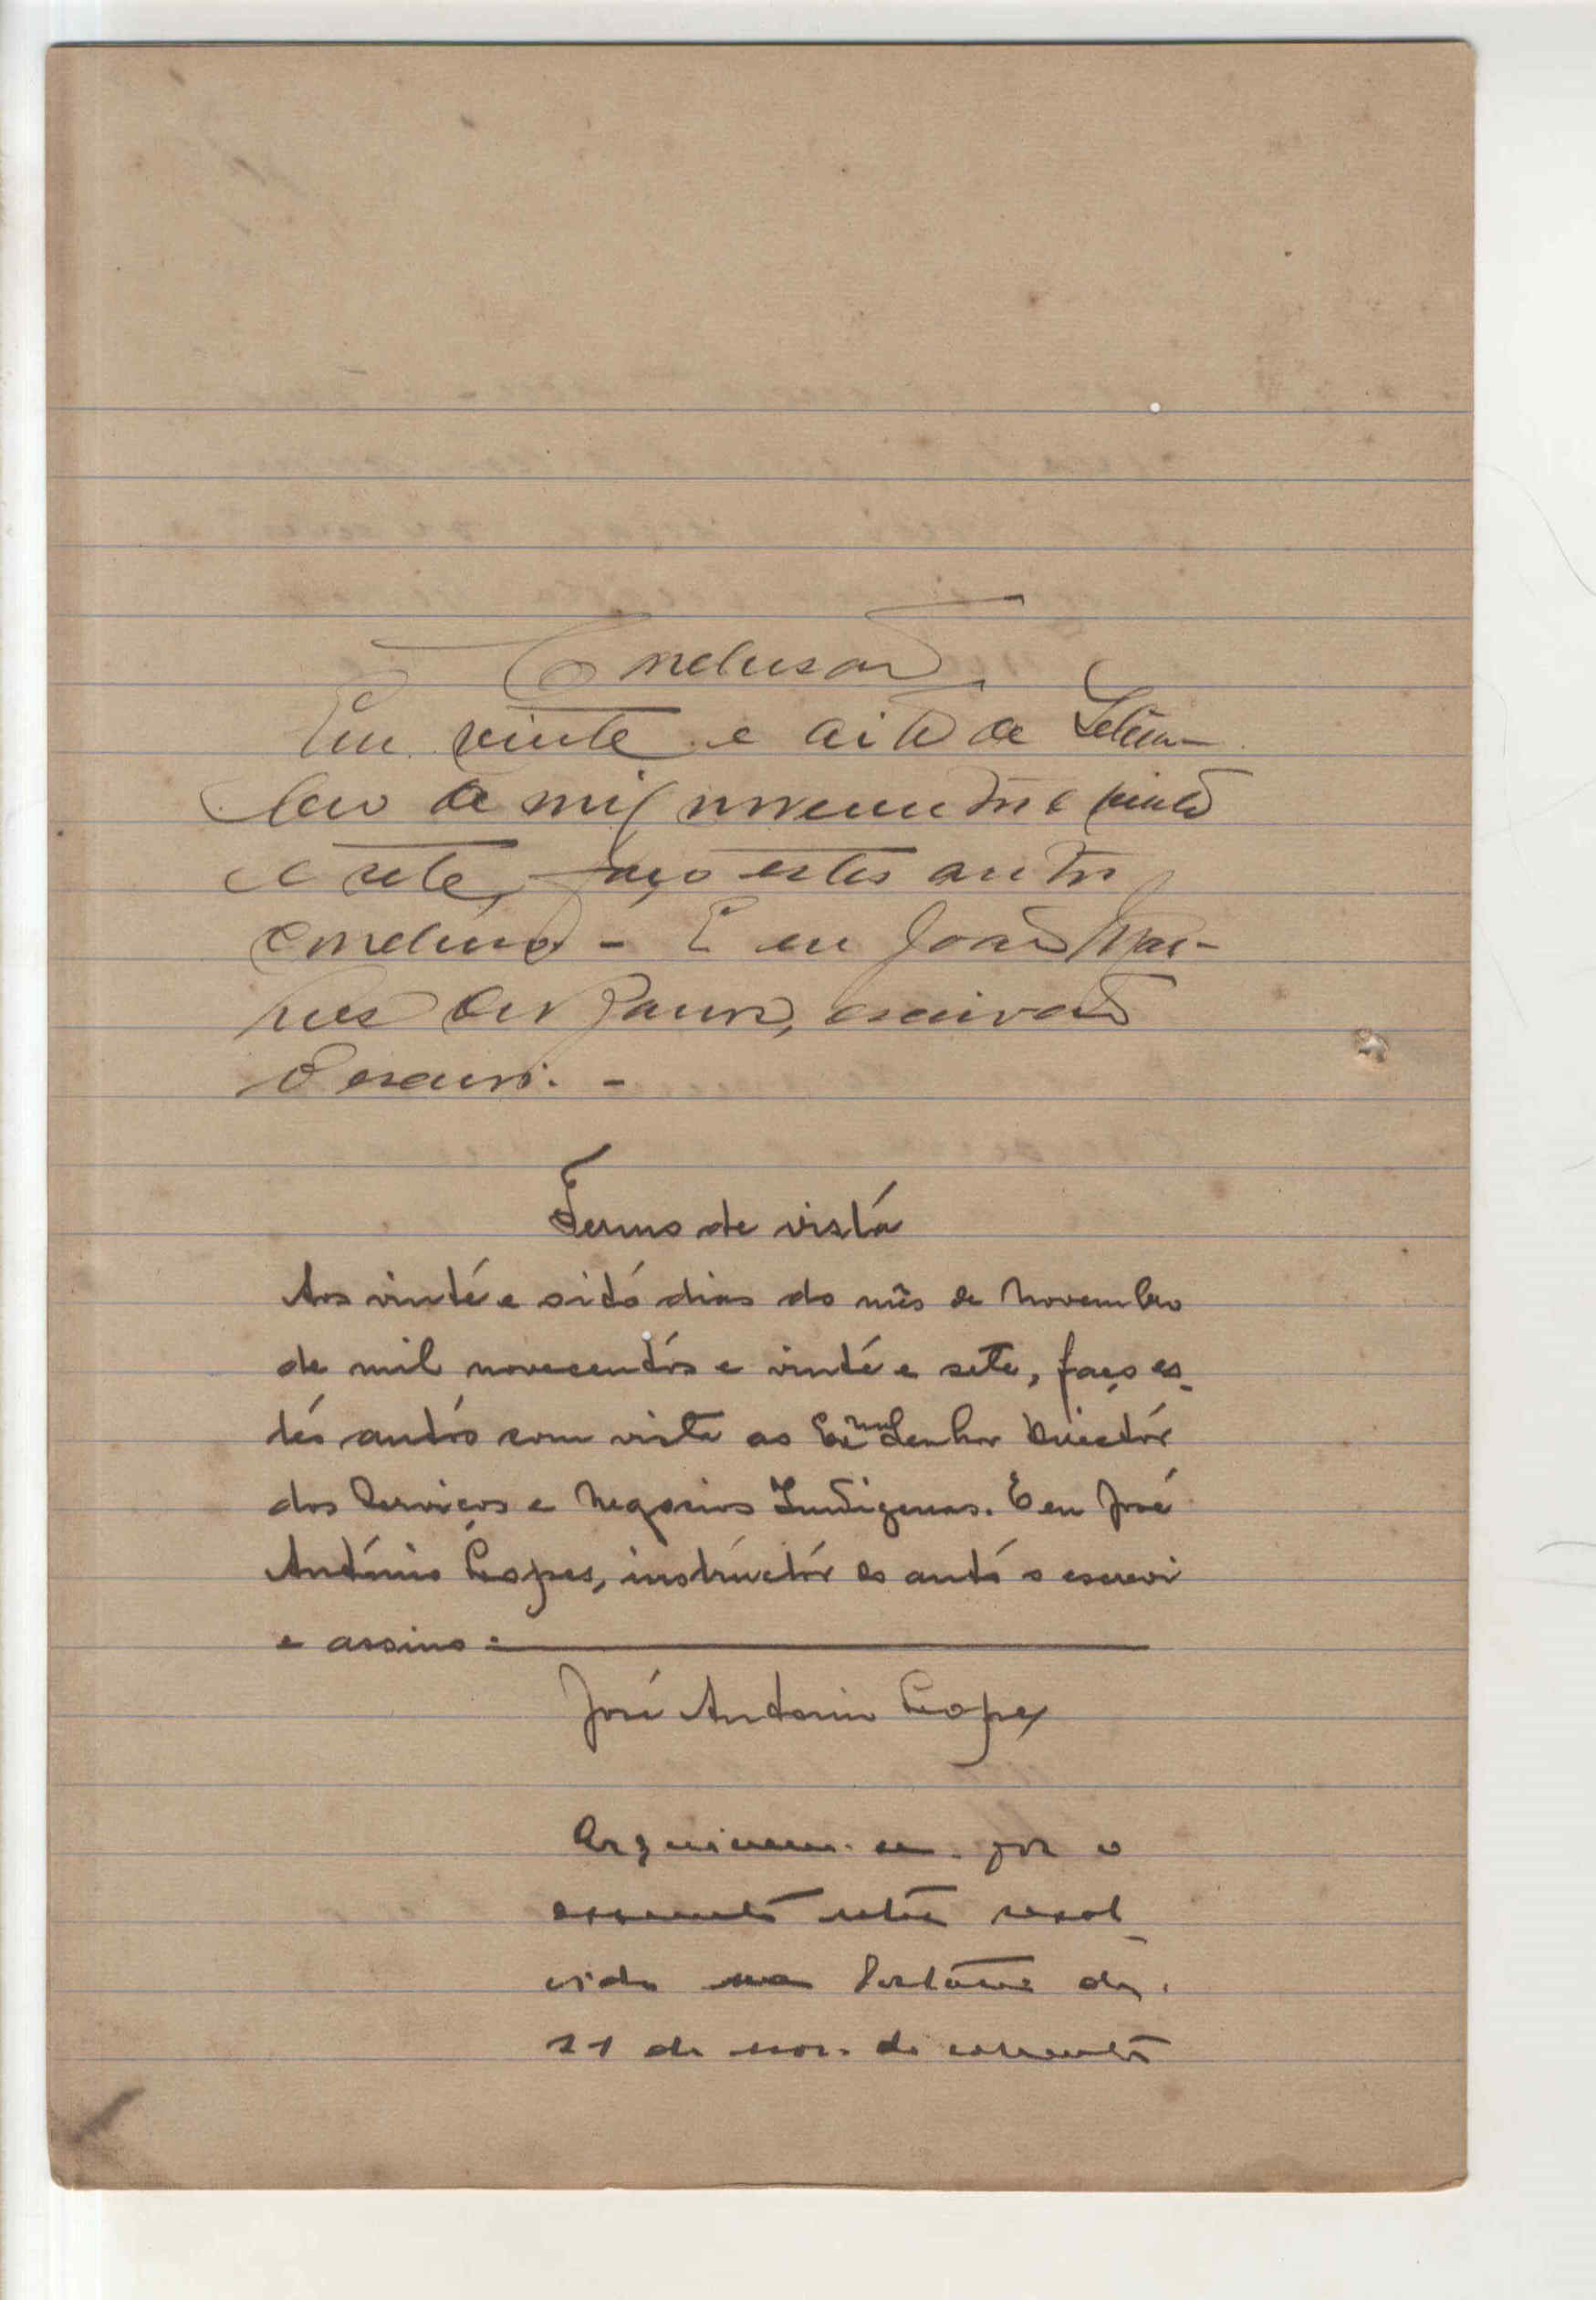 Conclusão
Em vinte e oito de Setem-
bro de mil novecentos e vinte
e sete, faço estes autos
conclusos - E eu João Mar-
ques escrivão
o escrevi. -
Termo de vista
Aos vinte e oito dias do mês de Novembro
de mil novecentos e vinte e sete, faço es-
tes autos com vista ao Exmo Senhor Director
dos Serviços e Negocios Indigenas. E eu José
António Lopes, instructór do auto o escrevi
e assino:
José Antonio Lopes
Arquivem-se por o
assunto estar resol-
vido na Portaria de
21 de nov. do corrente